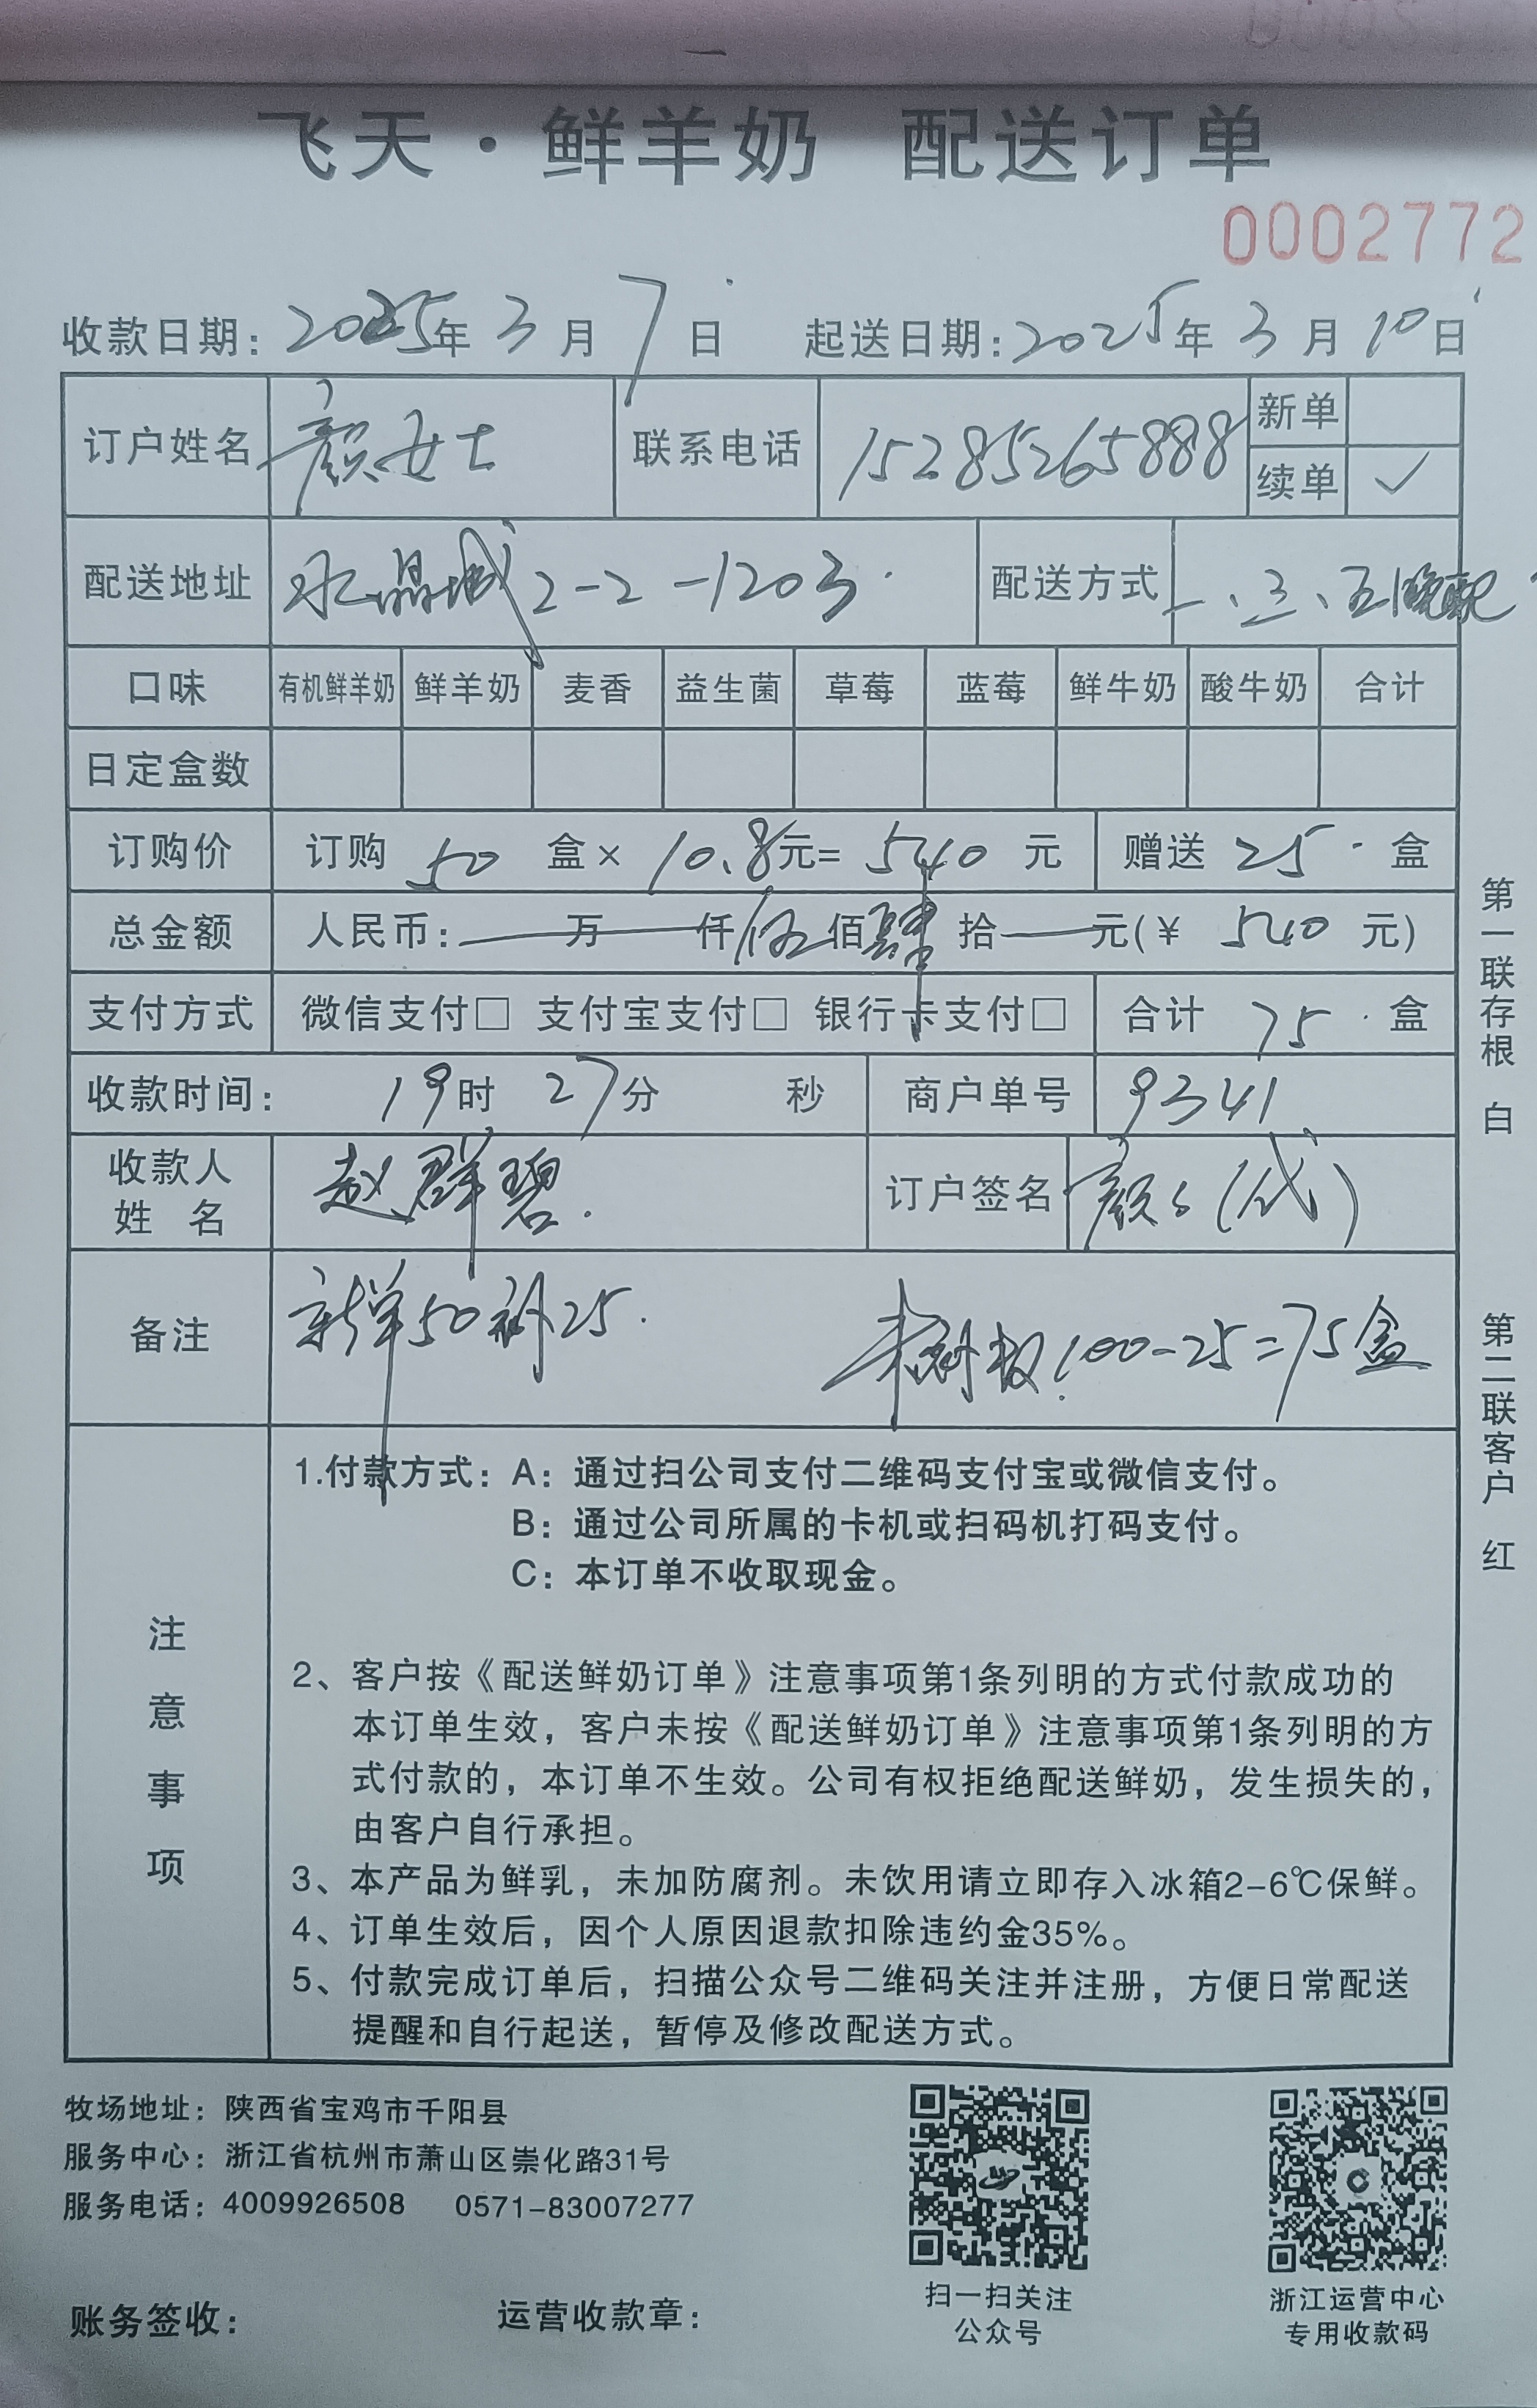 飞天·鲜羊奶 配送订单
0002772
收款日期：2025年 3月 7日 起送日期：2025年 3月 10日
订户姓名 颜女士 联系电话 15285265888 新单
续单 ✓
配送地址 水晶城2-2-1203 配送方式 一、三、五晚配
口味 有机鲜羊奶 鲜羊奶 麦香 益生菌 草莓 蓝莓 鲜牛奶 酸牛奶 合计
日定盒数
订购价 订购 50 盒× 10.8元= 540 元 赠送 25 盒
总金额 人民币：万 仟伍佰肆拾 元(￥ 540 元)
支付方式 微信支付□ 支付宝支付□ 银行卡支付□ 合计 75 盒
收款时间： 19时 27分 秒 商户单号 9341
收款人
姓 名 赵群碧 订户签名 颜 (代)
备注 新单50 补25. 100-25=75盒
注意事项
1.付款方式：A：通过扫公司支付二维码支付宝或微信支付。
B：通过公司所属的卡机或扫码机打码支付。
C：本订单不收取现金。
2、客户按《配送鲜奶订单》注意事项第1条列明的方式付款成功的
本订单生效，客户未按《配送鲜奶订单》注意事项第1条列明的方
式付款的，本订单不生效。公司有权拒绝配送鲜奶，发生损失的，
由客户自行承担。
3、本产品为鲜乳，未加防腐剂。未饮用请立即存入冰箱2-6℃保鲜。
4、订单生效后，因个人原因退款扣除违约金35%。
5、付款完成订单后，扫描公众号二维码关注并注册，方便日常配送
提醒和自行起送，暂停及修改配送方式。
第一联存根 白
第二联客户 红
牧场地址：陕西省宝鸡市千阳县
服务中心：浙江省杭州市萧山区崇化路31号
服务电话：4009926508 0571-83007277
扫一扫关注
公众号
浙江运营中心
专用收款码
账务签收： 运营收款章：